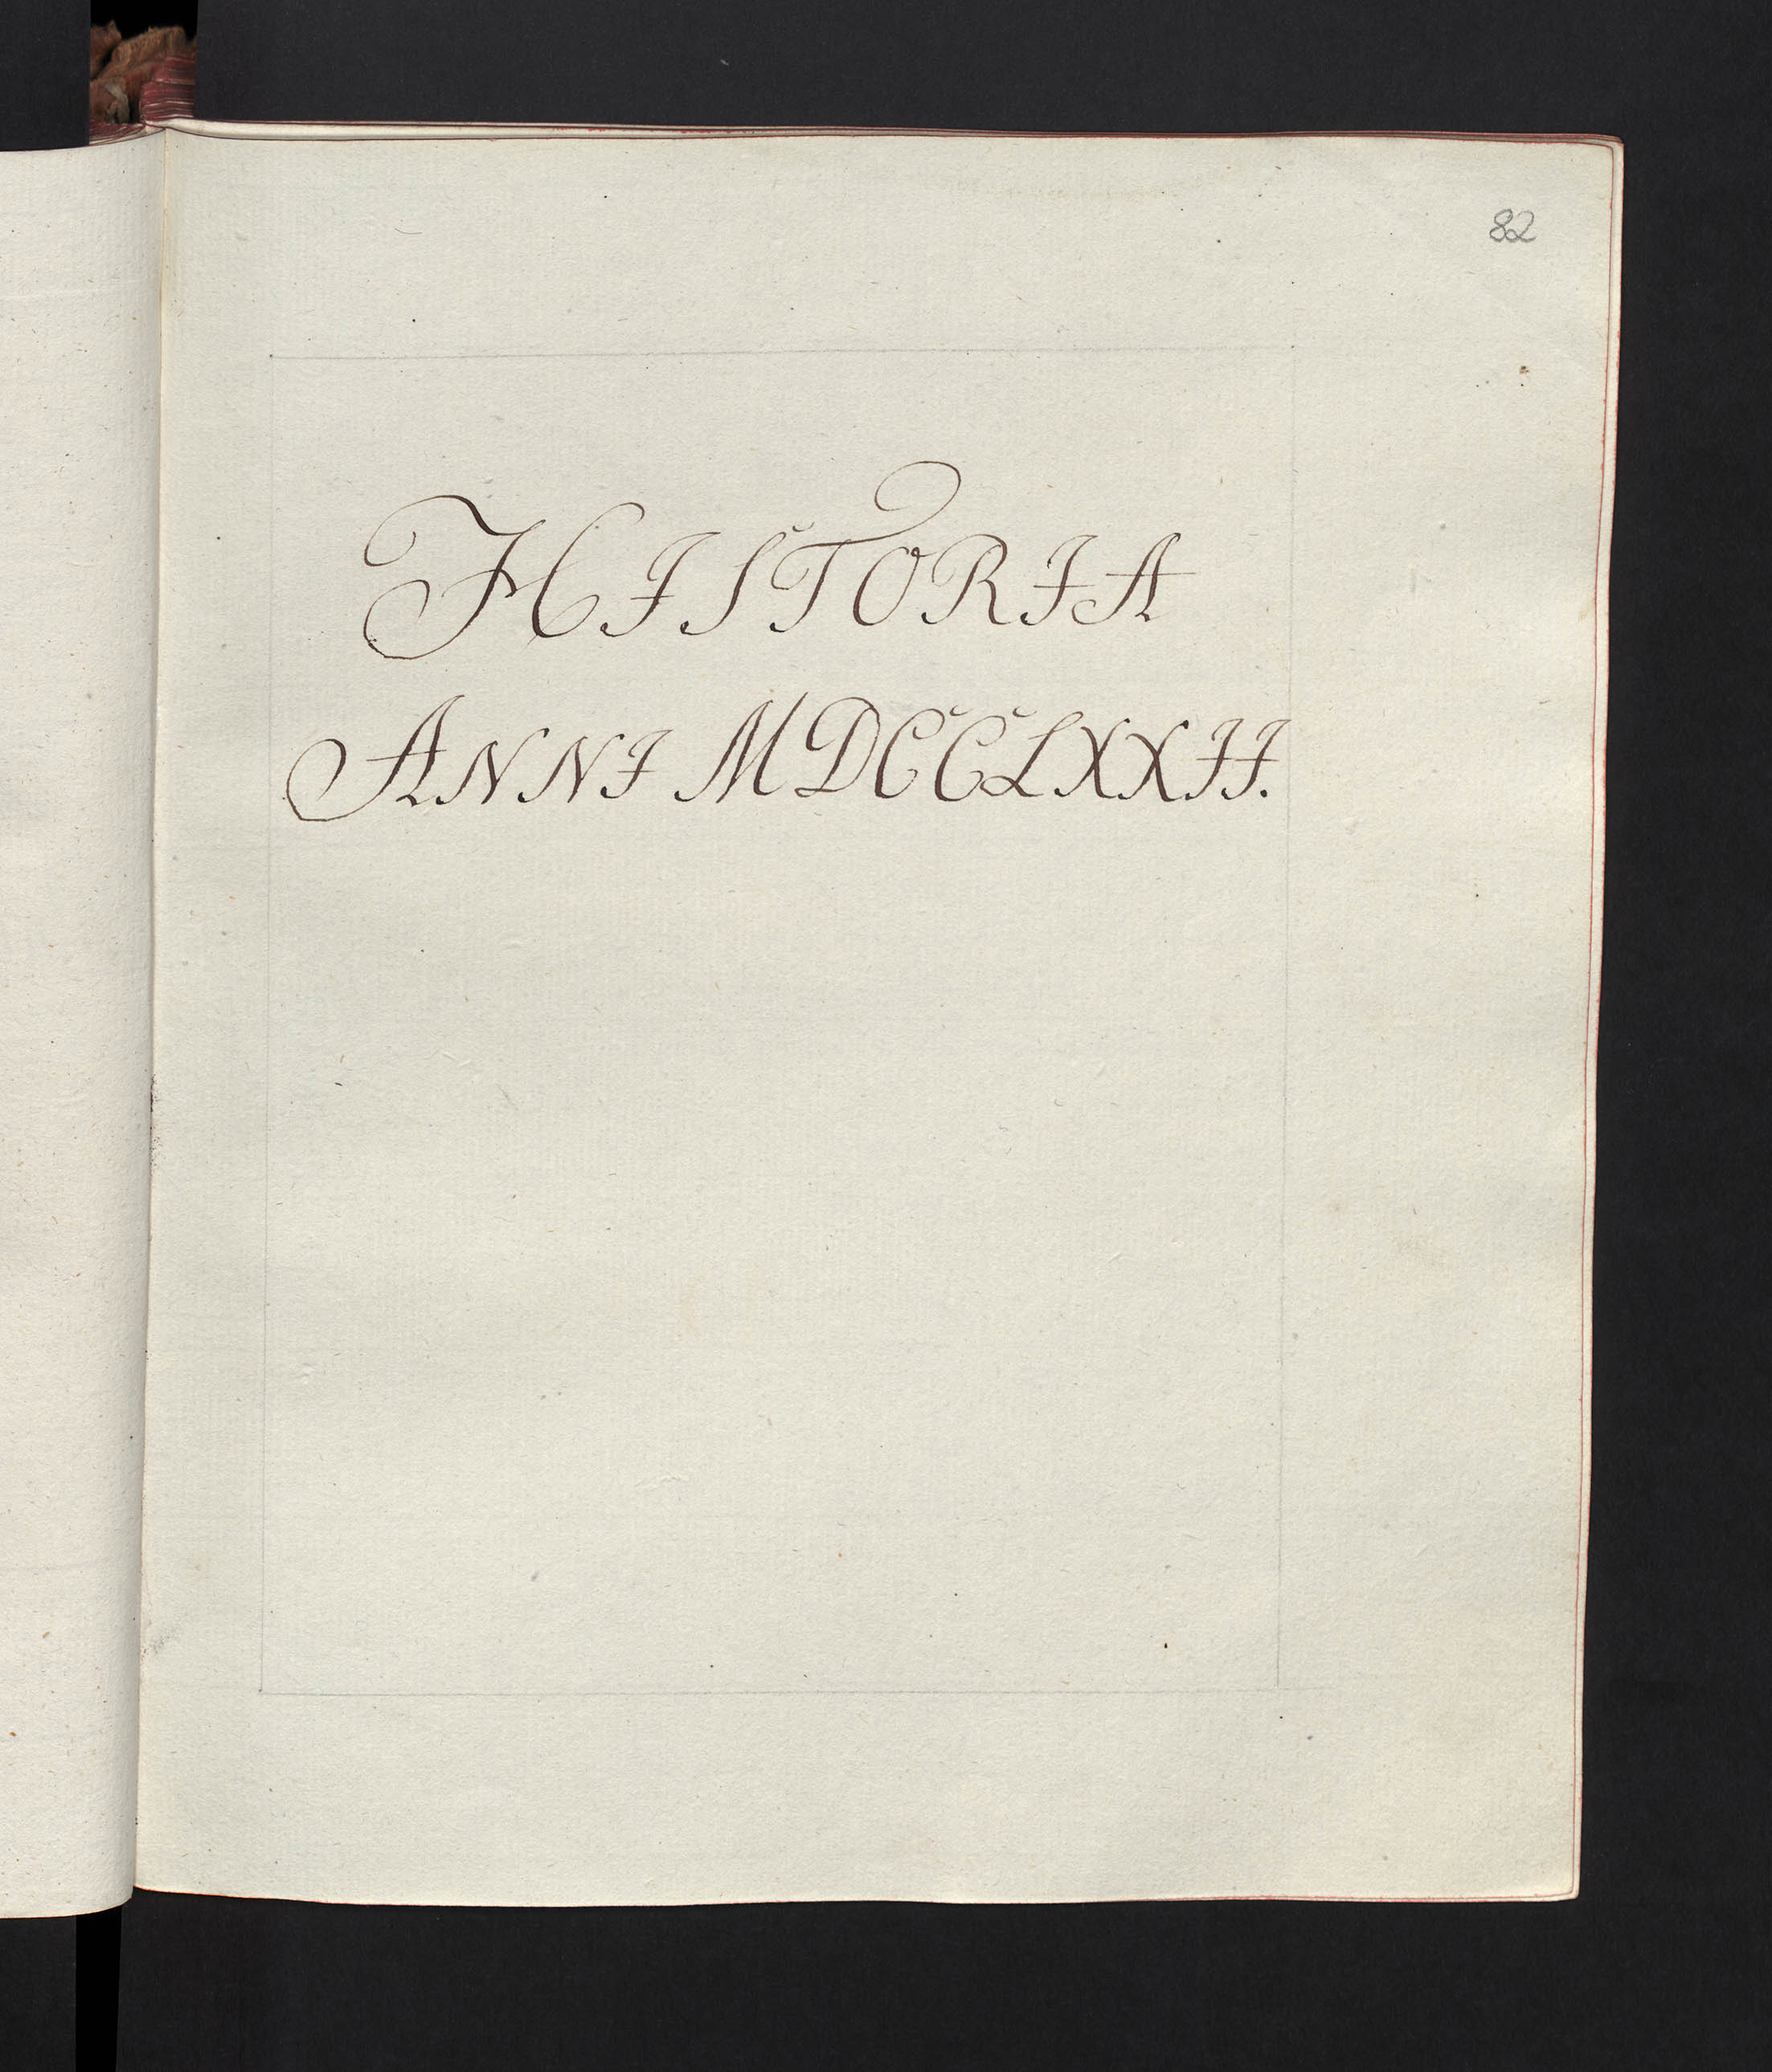 82
HISTORIA
ANNI MDCCLXXII.